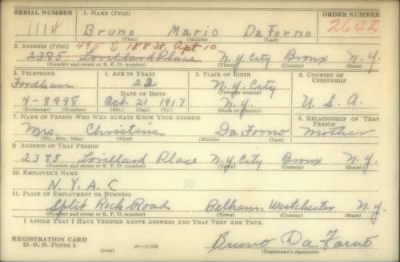 SERIAL NUMBER 1. NAME (Print) ORDER NUMBER
1114 Bruno Mario DaForno 2642
(First) (Middle) (Last)
2. ADDRESS (Print) 495 E 188 St. Apt 10
2385 Lorillard Place N.Y. City Bronx N.Y.
(Number and street or R. F. D. number) (Town) (County) (State)
3. TELEPHONE 4. AGE IN YEARS 5. PLACE OF BIRTH 6. COUNTRY OF CITIZENSHIP
Fordham 23 N.Y. City
DATE OF BIRTH
4-8998 Oct. 21 1917 N.Y. U.S.A.
7. NAME OF PERSON WHO WILL ALWAYS KNOW YOUR ADDRESS 8. RELATIONSHIP OF THAT PERSON
Mrs. Christine DaForno Mother
(Mr., Mrs., Miss) (First) (Middle) (Last)
9. ADDRESS OF THAT PERSON
2385 Lorillard Place N.Y. City Bronx N.Y.
(Number and street or R. F. D. number) (Town) (County) (State)
10. EMPLOYER'S NAME
N.Y.A.C
11. PLACE OF EMPLOYMENT OR BUSINESS
Split Rock Road Pelham Westchester N.Y.
(Number and street or R. F. D. number) (Town) (County) (State)
I AFFIRM THAT I HAVE VERIFIED ABOVE ANSWERS AND THAT THEY ARE TRUE.
REGISTRATION CARD
D. S. S. FORM 1 Bruno DaForno
(Registrant's signature)